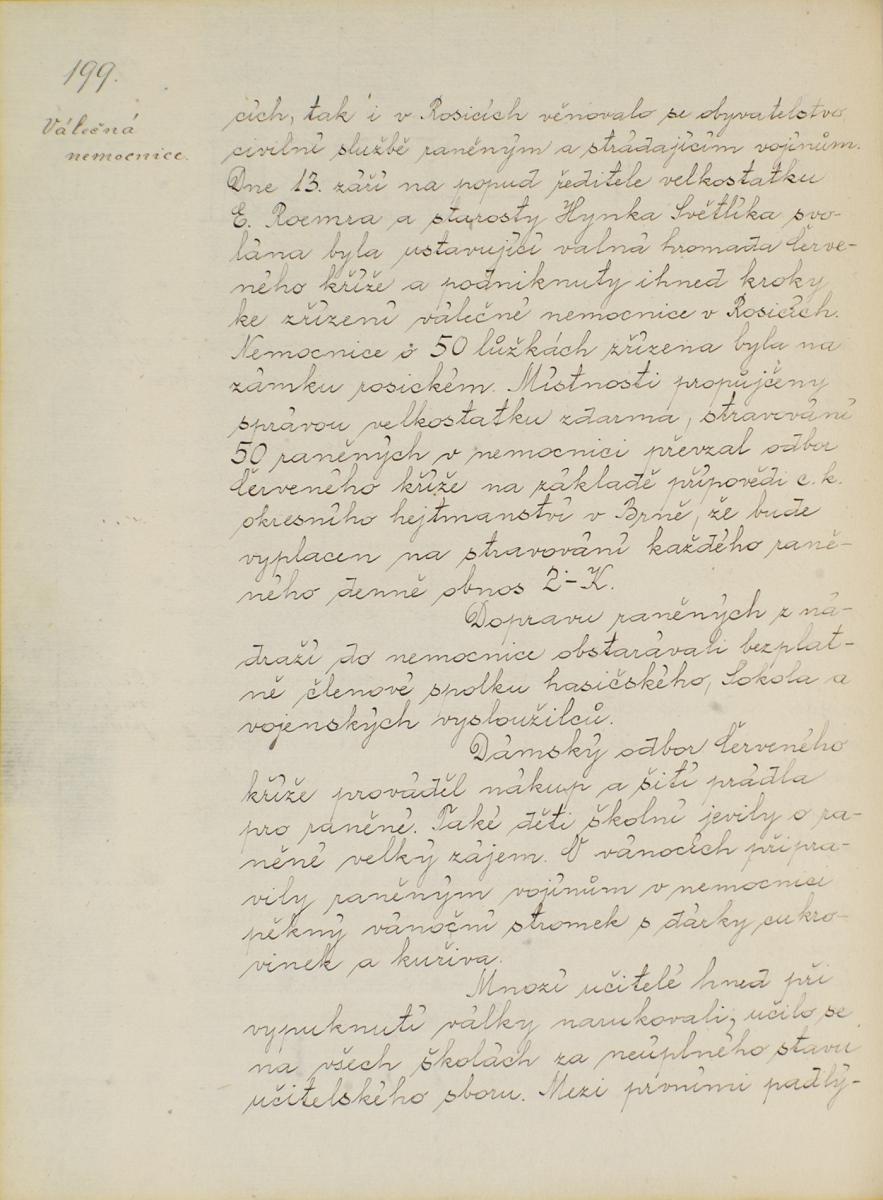 199.
Válečná
nemocnice.
cích, tak i v Rosicích věnovalo se obyvatelstvo
civilní službě raněným a strádajícím vojínům.
Dne 13. září na popud ředitele velkostatku
E. Roemra a starosty Hynka Světlíka svo-
lána byla ustavující valná hromada Červe-
ného kříže a podniknuty ihned kroky
ke zřízení válečné nemocnice v Rosicích.
Nemocnice o 50 lůžkách zřízena byla na
zámku rosickém. Místnosti propůjčeny
správou velkostatku zdarma, stravování
50 raněných v nemocnici převzal odbor
Červeného kříže na základě přípovědi c. k.
okresního hejtmanství v Brně, že bude
vyplacen na stravování každého raně-
ného denně obnos 2·- K.
Dopravu raněných z ná-
draží do nemocnice obstarávali bezplat-
ně členové spolku hasičského, Sokola a
vojenských vysloužilců.
Dámský odbor Červeného
kříže prováděl nákup a šití prádla
pro raněné. Také děti školní jevily o ra-
něné velký zájem. O vánocích připra-
vily raněným vojínům v nemocnici
pěkný vánoční stromek s dárky cukro-
vinek a kuřiva.
Mnozí učitelé hned při
vypuknutí války narukovali, učilo se
na všech školách za neúplného stavu
učitelského sboru. Mezi prvními padlý-